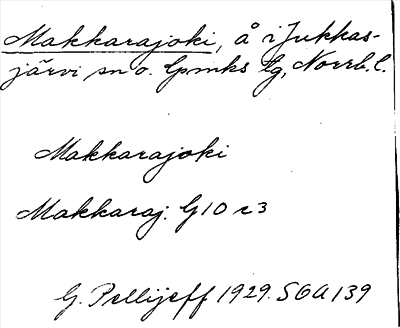 Makkarajoki, å i Jukkas-
järvi sn o. lpmks lg, Norrb. l.
Makkarajoki
Makkaraj. G10 r3
G. Pellijeff 1929. SOA 139